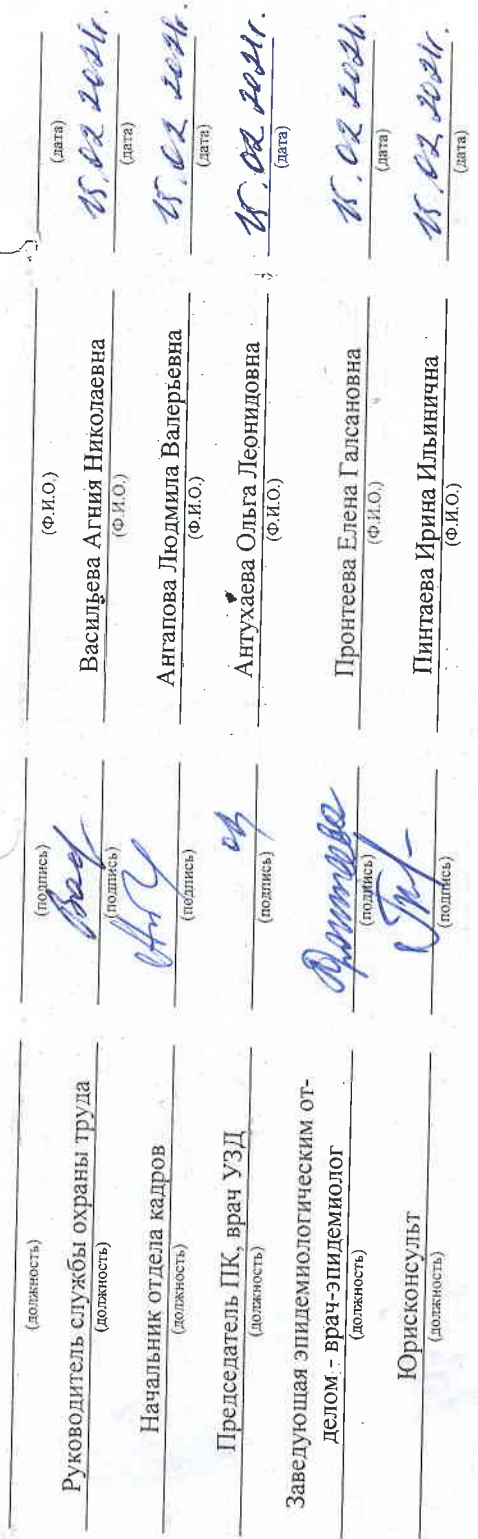 (должность) (подпись) (Ф.И.О.) (дата)
Руководитель службы охраны труда Васильева Агния Николаевна 15.02 2021г.
(должность) (подпись) (Ф.И.О.) (дата)
Начальник отдела кадров Ангапова Людмила Валерьевна 15.02 2021г.
(должность) (подпись) (Ф.И.О.) (дата)
Председатель ПК, врач УЗД Антухаева Ольга Леонидовна 15.02 2021г.
(должность) (подпись) (Ф.И.О.) (дата)
Заведующая эпидемиологическим от-
делом - врач-эпидемиолог Пронтеева Елена Галсановна 15.02 2021г.
(должность) (подпись) (Ф.И.О.) (дата)
Юрисконсульт Пинтаева Ирина Ильинична 15.02 2021г.
(должность) (подпись) (Ф.И.О.) (дата)